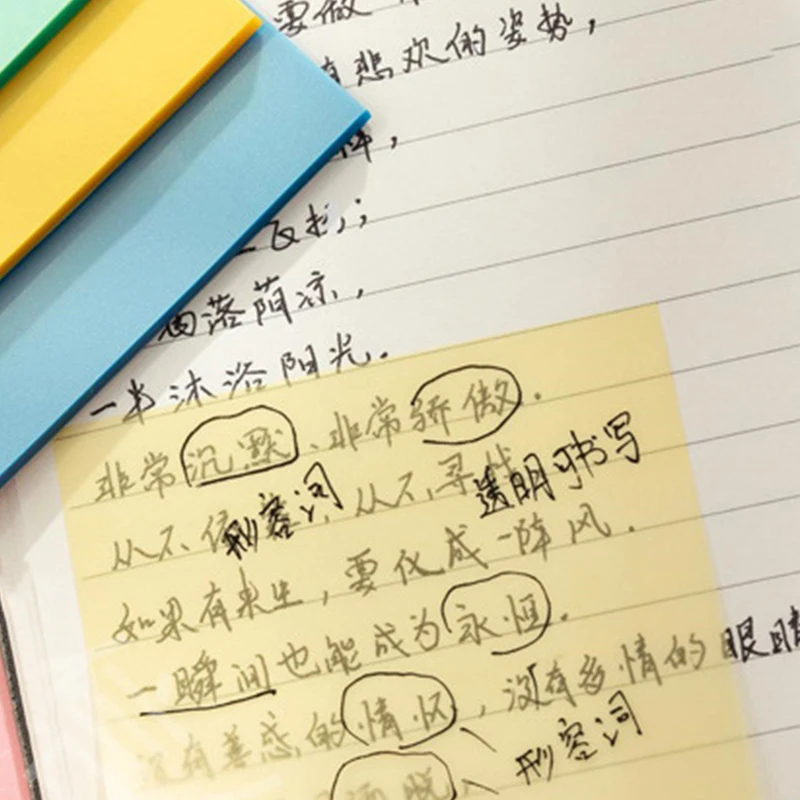 要做
有悲欢的姿势，
，
飞扬；
洒落荫凉，
一半沐浴阳光。
非常沉默、非常骄傲。
形容词
透明可书写
从不依，从不寻找
如果有来生，要化成一阵风。
一瞬间也能成为永恒。
没有善感的情怀，没有多情的眼睛
形容词
洒脱